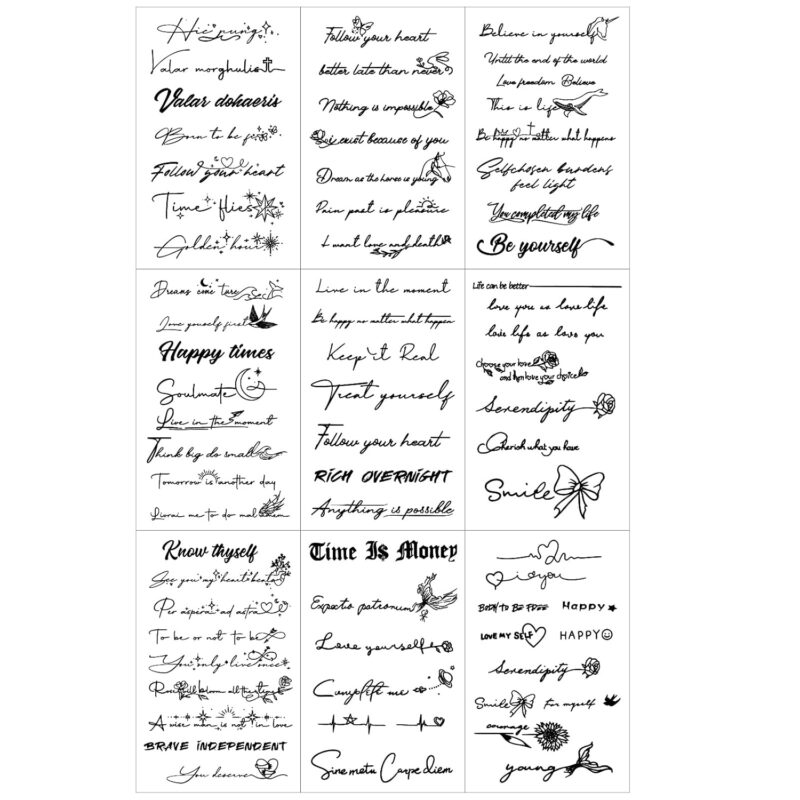 Hic nunc
Valar morghulis
Valar dohaeris
Born to be
Follow your heart
Time flies
Golden hour
Follow your heart
better late than never
Nothing is impossible
exist because of you
Dream as the horse is young
Pain past is pleasure
I want love and death
Believe in yourself
Until the end of the world
Love freedom Believe
This is life
Be happy no matter what happens
Selfchosen burdens
feel light
You completed my life
Be yourself
Dreams come ture
Love yourself first
Happy times
Soulmate
Live in the moment
Think big do small
Tomorrow is another day
me to do mal
Live in the moment
Be happy no matter what happen
Keep it Real
Treat yourself
Follow your heart
RICH OVERNIGHT
Anything is possible
Life can be better
love you as love life
love life as love you
Choose your love
and then love your choice
Serendipity
Cherish what you have
Smile
Know thyself
See you my heart beats
Per aspera ad astra
To be or not to be
You only live once
bloom all the time
A wise man is not in love
BRAVE INDEPENDENT
You deserve
Time I$ Money
Expecto patronum
Love yourself
Complete me
Sine metu Carpe diem
i you
BODY TO BE FREE Happy
LOVE MY SELF HAPPY
Serendipity
Smile For myself
courage
young